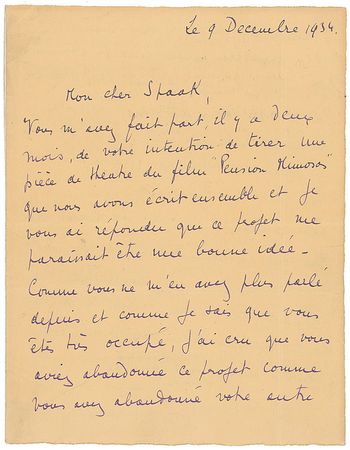 Le 9 Decembre 1934.
Mon cher Spaak,
Vous m'avez fait part, il y a deux
mois, de votre intention de tirer une
pièce de theatre du film "Pension Mimosas"
que nous avons écrit ensemble et je
vous ai répondu que ce projet me
paraissait être une bonne idée -
Comme vous ne m'en avez plus parlé
depuis et comme je sais que vous
êtes très occupé, j'ai cru que vous
aviez abandonné ce projet comme
vous avez abandonné votre autre